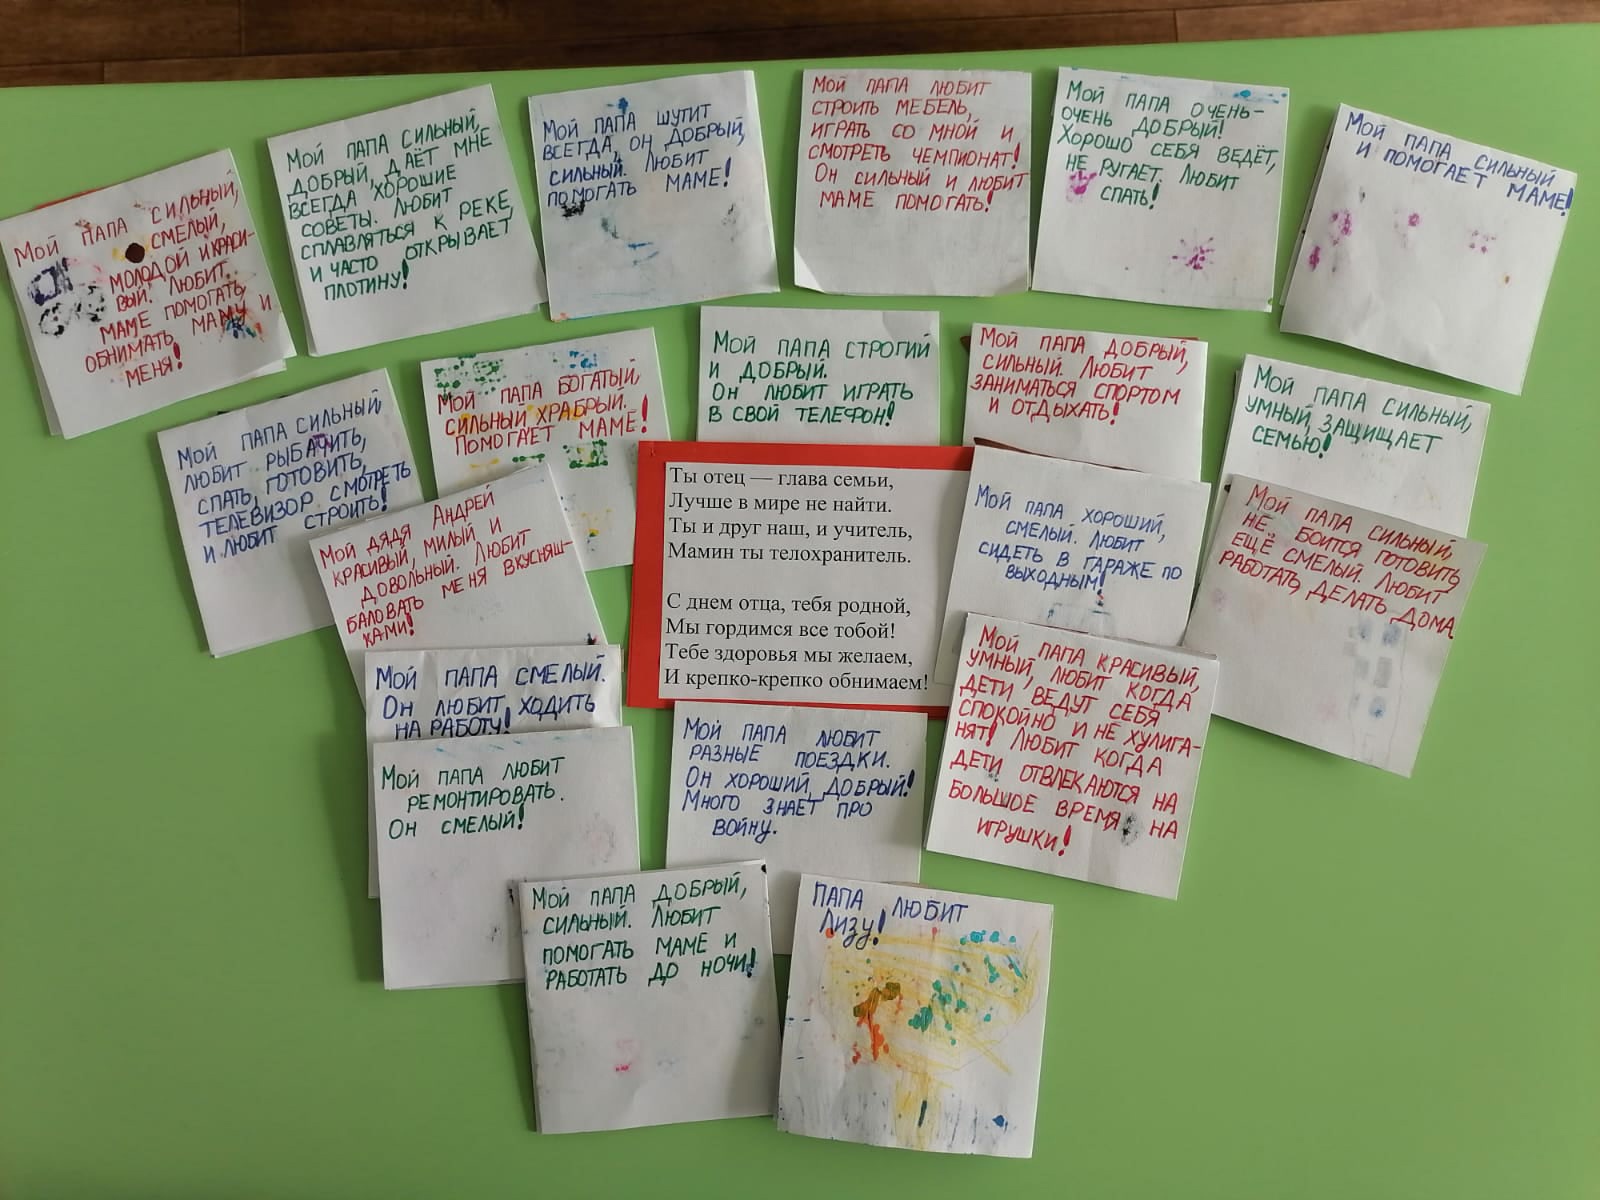 Мой папа сильный,
смелый,
молодой и краси-
вый. Любит
маме помогать
обнимать маму и
меня!
Мой папа сильный,
добрый, даёт мне
всегда хорошие
советы. Любит
сплавляться к реке,
и часто открывает
плотину!
Мой папа шутит
всегда, он добрый,
сильный. Любит
помогать маме!
Мой папа любит
строить мебель,
играть со мной и
смотреть чемпионат!
Он сильный и любит
маме помогать!
Мой папа очень-
очень добрый!
Хорошо себя ведёт,
не ругает. Любит
спать!
Мой папа сильный
и помогает маме!
Мой папа сильный,
любит рыбачить,
спать, готовить,
телевизор смотреть
и любит строить!
Мой папа богатый,
сильный храбрый.
Помогает маме!
Мой папа строгий
и добрый.
Он любит играть
в свой телефон!
Мой папа добрый,
сильный. Любит
заниматься спортом
и отдыхать!
Мой папа сильный,
умный, защищает
семью!
Мой дядя Андрей
красивый, милый и
довольный. Любит
баловать меня вкусняш-
ками!
Ты отец — глава семьи,
Лучше в мире не найти.
Ты и друг наш, и учитель,
Мамин ты телохранитель.
С днем отца, тебя родной,
Мы гордимся все тобой!
Тебе здоровья мы желаем,
И крепко-крепко обнимаем!
Мой папа хороший,
смелый. Любит
сидеть в гараже по
выходным!
Мой папа сильный,
не боится готовить,
ещё смелый. Любит
работать, делать дома
Мой папа смелый.
Он любит ходить
на работу!
Мой папа любит
ремонтировать.
Он смелый!
Мой папа любит
разные поездки.
Он хороший, добрый!
Много знает про
войну.
Мой папа красивый,
умный, любит когда
дети ведут себя
спокойно и не хулига-
нят! Любит когда
дети отвлекаются на
большое время на
игрушки!
Мой папа добрый,
сильный. Любит
помогать маме и
работать до ночи!
Папа любит
Лизу!